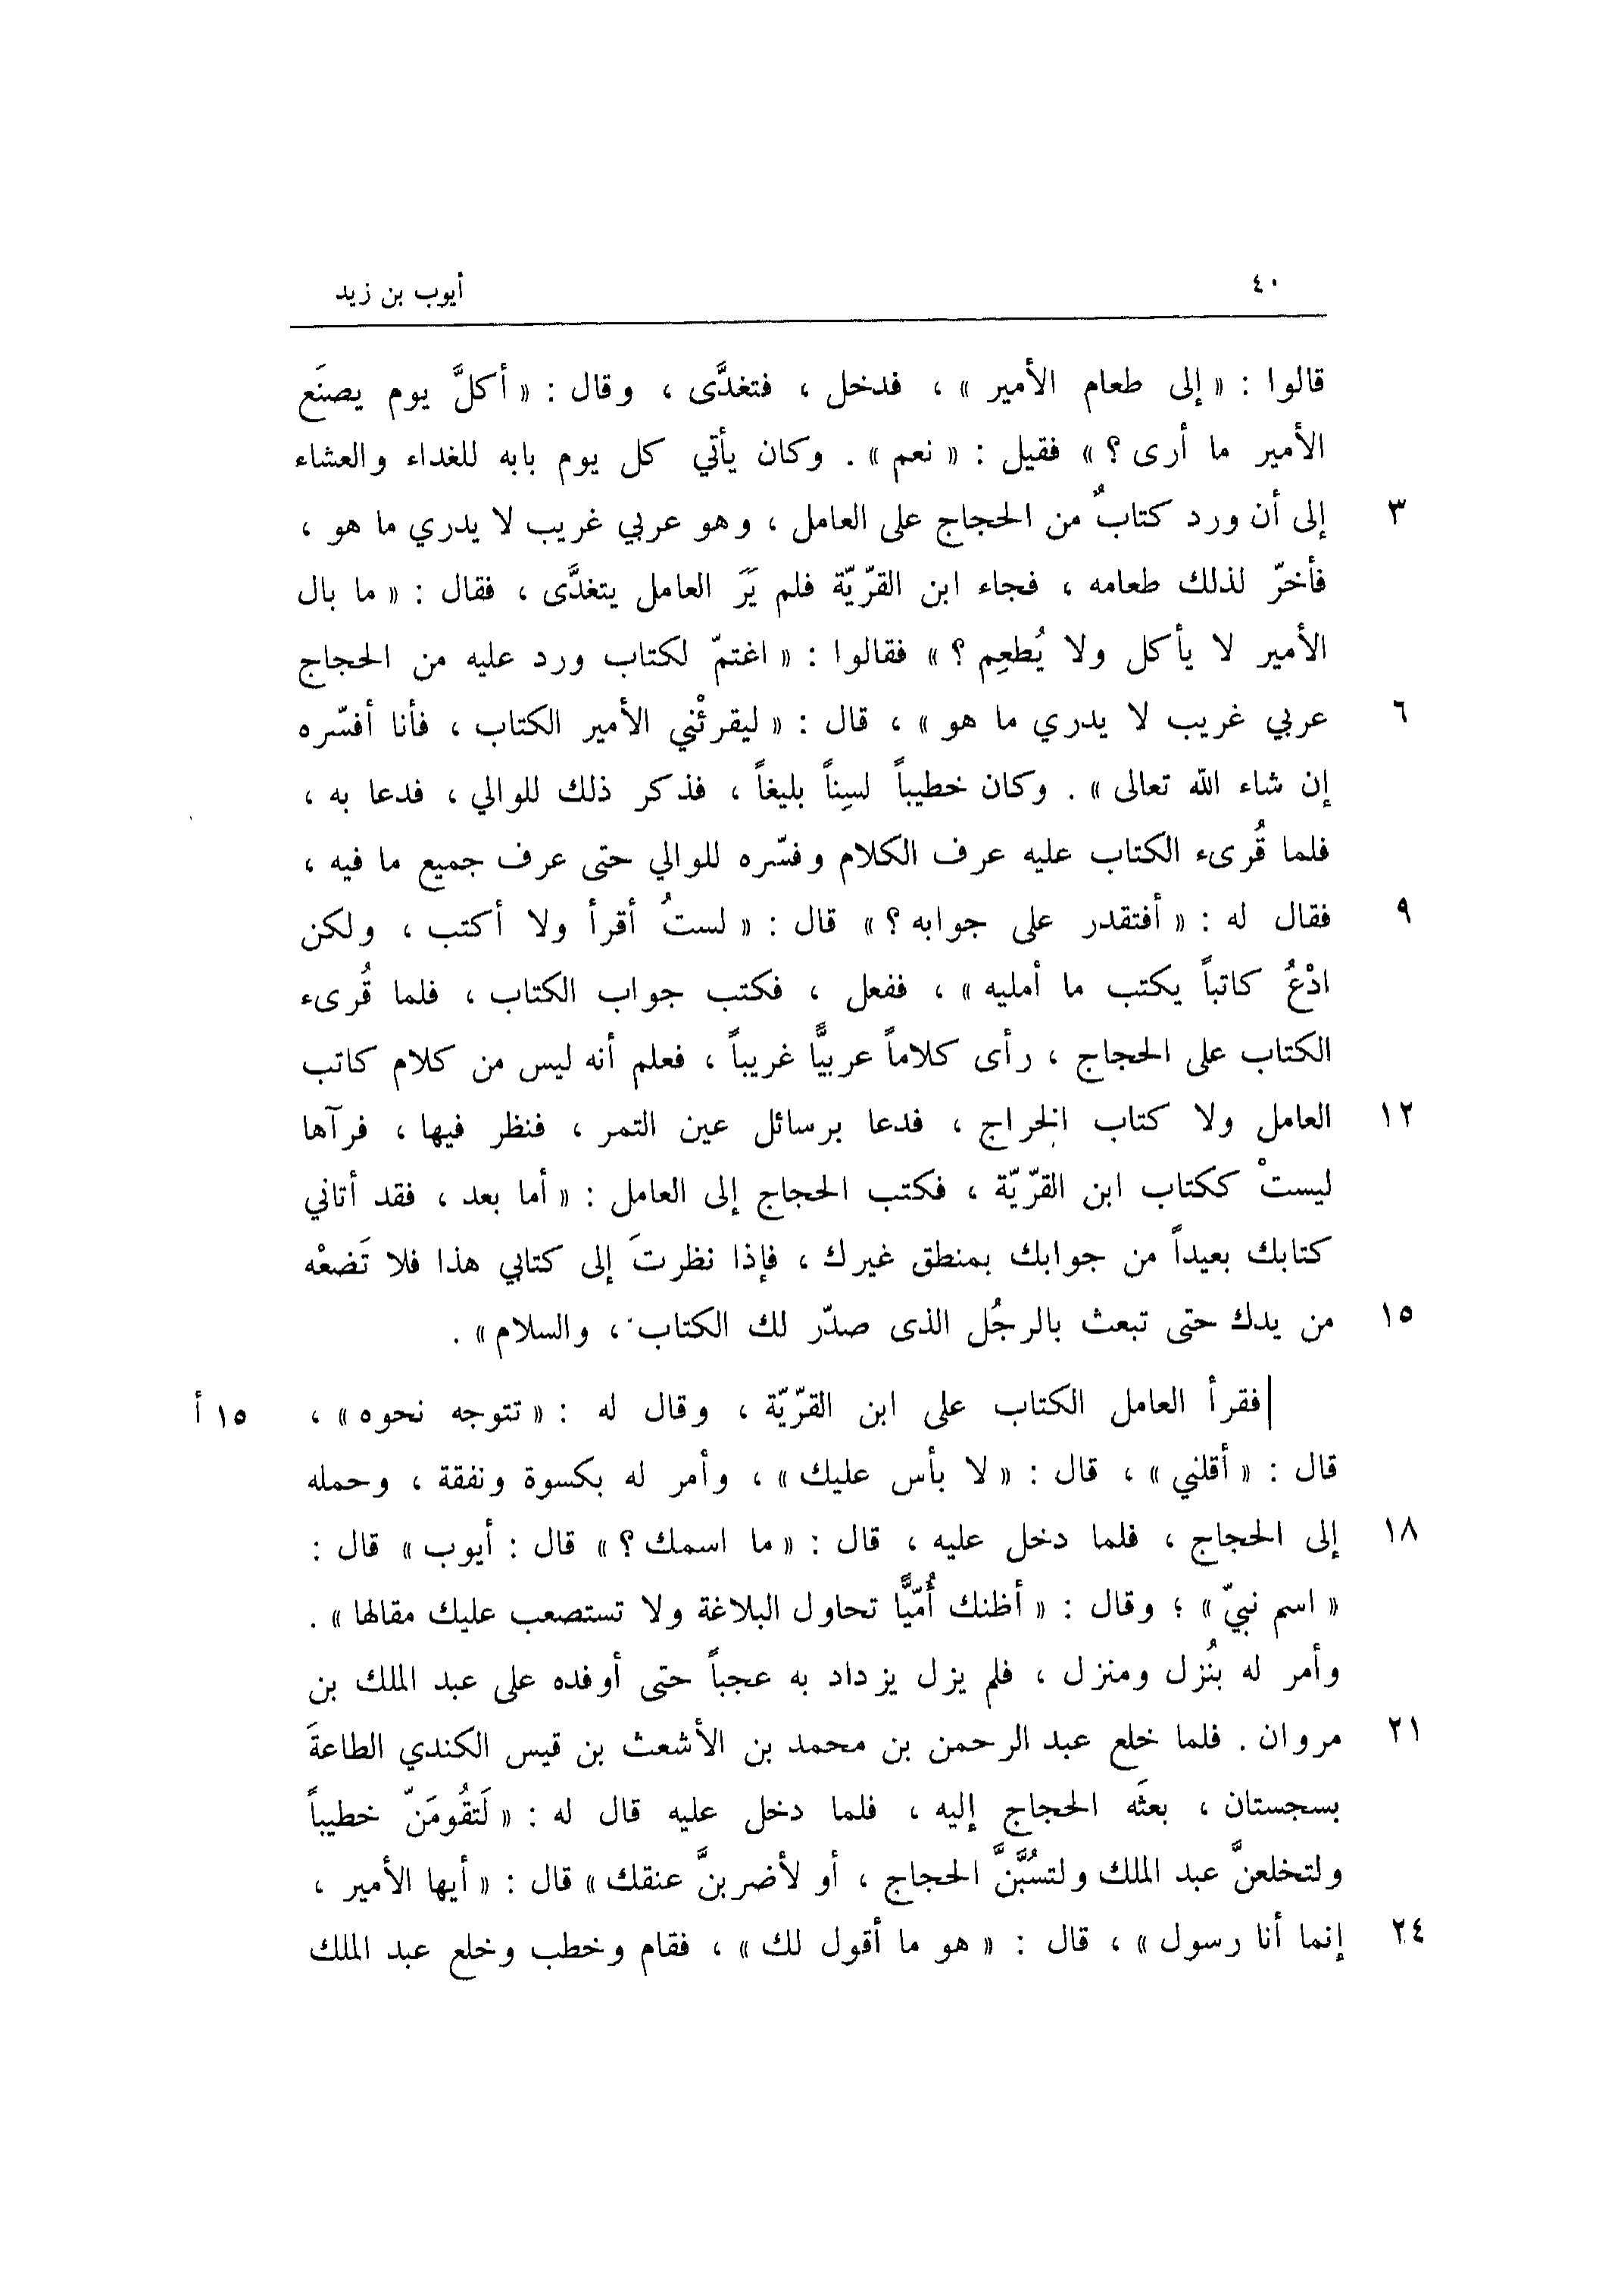 ٤٠ أيوب بن زيد
قالوا : « إلى طعام الأمير » ، فدخل ، فتغدَّى ، وقال : « أكلَّ يوم يصنَع
الأمير ما أرى ؟ » فقيل : « نعم » . وكان يأتي كل يوم بابه للغداء والعشاء
٣ إلى أن ورد كتابٌ من الحجاج على العامل ، وهو عربي غريب لا يدري ما هو ،
فأخرّ لذلك طعامه ، فجاء ابن القرّيّة فلم يَرَ العامل يتغدَّى ، فقال : « ما بال
الأمير لا يأكل ولا يُطعِم ؟ » فقالوا : « اغتمّ لكتاب ورد عليه من الحجاج
٦ عربي غريب لا يدري ما هو » ، قال : « ليقرئْني الأمير الكتاب ، فأنا أفسّره
إن شاء الله تعالى » . وكان خطيباً لسِناً بليغاً ، فذكر ذلك للوالي ، فدعا به ،
فلما قُرىء الكتاب عليه عرف الكلام وفسّره للوالي حتى عرف جميع ما فيه ،
٩ فقال له : « أفتقدر على جوابه ؟ » قال : « لستُ أقرأ ولا أكتب ، ولكن
ادْعُ كاتباً يكتب ما أمليه » ، ففعل ، فكتب جواب الكتاب ، فلما قُرىء
الكتاب على الحجاج ، رأى كلاماً عربيًّا غريباً ، فعلم أنه ليس من كلام كاتب
١٢ العامل ولا كتاب الخراج ، فدعا برسائل عين التمر ، فنظر فيها ، فرآها
ليستْ ككتاب ابن القرّيّة ، فكتب الحجاج إلى العامل : « أما بعد ، فقد أتاني
كتابك بعيداً من جوابك بمنطق غيرك ، فإذا نظرتَ إلى كتابي هذا فلا تَضعْه
١٥ من يدك حتى تبعث بالرجُل الذى صدّر لك الكتاب ، والسلام » .
|فقرأ العامل الكتاب على ابن القرّيّة ، وقال له : « تتوجه نحوه » ، ١٥ أ
قال : « أقلني » ، قال : « لا بأس عليك » ، وأمر له بكسوة ونفقة ، وحمله
١٨ إلى الحجاج ، فلما دخل عليه ، قال : « ما اسمك ؟ » قال : أيوب » قال :
« اسم نبيّ » ؛ وقال : « أظنك أُمّيًّا تحاول البلاغة ولا تستصعب عليك مقالها » .
وأمر له بنُزل ومنزل ، فلم يزل يزداد به عجباً حتى أوفده على عبد الملك بن
٢١ مروان . فلما خلع عبد الرحمن بن محمد بن الأشعث بن قيس الكندي الطاعةَ
بسجستان ، بعثَه الحجاج إليه ، فلما دخل عليه قال له : « لَتقُومَنّ خطيباً
ولتخلعنَّ عبد الملك ولتسُبَّنَّ الحجاج ، أو لأضربنَّ عنقك » قال : « أيها الأمير ،
٢٤ إنما أنا رسول » ، قال : « هو ما أقول لك » ، فقام وخطب وخلع عبد الملك